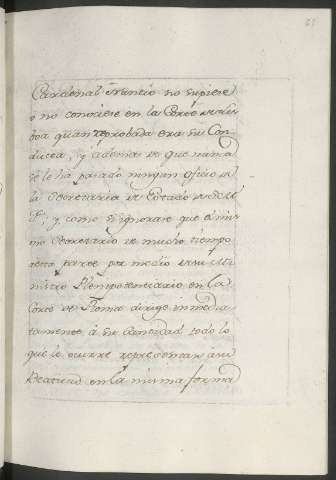 61
Cardenal Nuncio no supiese
ò no conociese en la Corte de Lis
boa quan reprobada era su Con
ducta, y ademas de que nunca
se le ha pasado ningun oficio de
la Secretaria de Estado de S. M.
F., y como si ignorase que el mis
mo Secretario de mucho tiempo
a esta parte por medio de su Mi
nistro Plenipotenciario en la
Corte de Roma dirige inmedia
tamente á su Santidad todo lo
que le ocurre representar à su
Beatitud en la misma forma